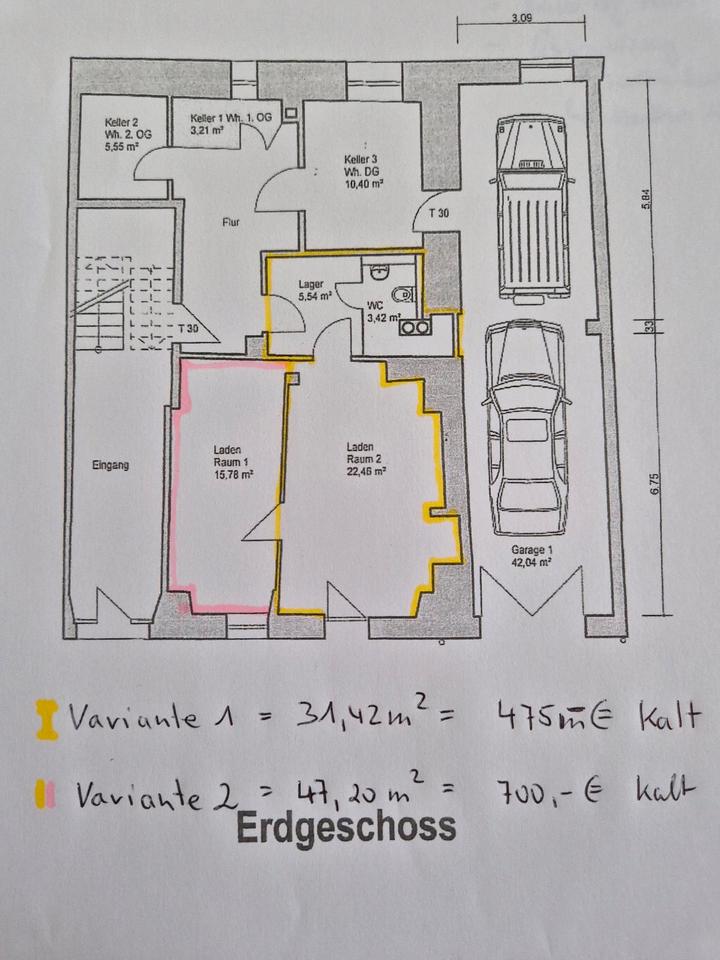 3.09
Keller 2
Wh. 2. OG
5,55 m²
Keller 1 Wh. 1. OG
3,21 m²
Keller 3
Wh. DG
10,40 m²
Flur
T 30
5,84
Lager
5,54 m²
WC
3,42 m²
T 30
33
Eingang
Laden
Raum 1
15,78 m²
Laden
Raum 2
22,46 m²
6,75
Garage 1
42,04 m²
Variante 1 = 31,42 m² = 475,- € kalt
Variante 2 = 47,20 m² = 700,- € kalt
Erdgeschoss